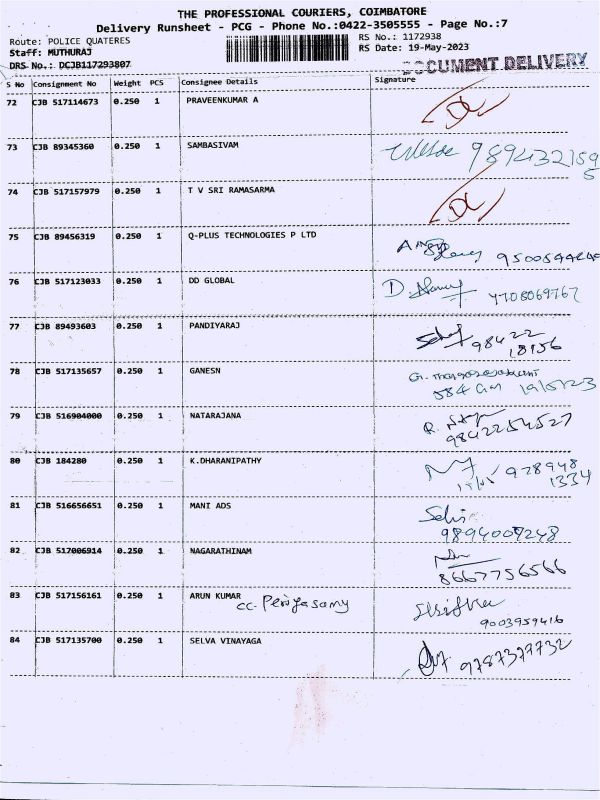 THE PROFESSIONAL COURIERS, COIMBATORE
Delivery Runsheet - PCG - Phone No.:0422-3505555 - Page No.:7
Route: POLICE QUATERES
RS No.: 1172938
Staff: MUTHURAJ
RS Date: 19-May-2023
DRS No.: DCJB117293807
DOCUMENT DELIVERY
S No Consignment No Weight PCS Consignee Details Signature
72 CJB 517114673 0.250 1 PRAVEENKUMAR A
73 CJB 89345360 0.250 1 SAMBASIVAM
74 CJB 517157979 0.250 1 T V SRI RAMASARMA
75 CJB 89456319 0.250 1 Q-PLUS TECHNOLOGIES P LTD
76 CJB 517123033 0.250 1 DD GLOBAL
77 CJB 89493603 0.250 1 PANDIYARAJ
98422
18156
78 CJB 517135657 0.250 1 GANESN
19/5/23
79 CJB 516904000 0.250 1 NATARAJANA
9842254527
80 CJB 184280 0.250 1 K.DHARANIPATHY
978948
1334
81 CJB 516656651 0.250 1 MANI ADS
9894007248
82 CJB 517006914 0.250 1 NAGARATHINAM
8667756566
83 CJB 517156161 0.250 1 ARUN KUMAR
cc. Periyasamy
9003959416
84 CJB 517135700 0.250 1 SELVA VINAYAGA
9787379732